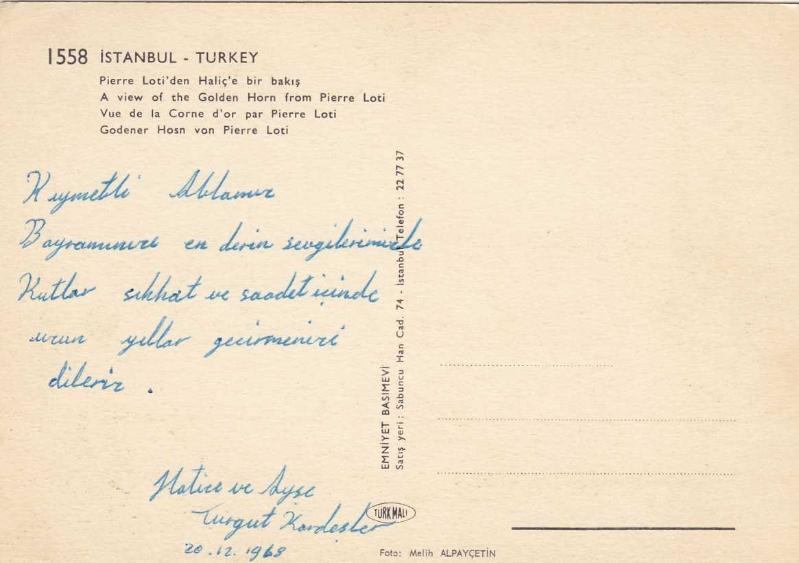 1558 İSTANBUL - TURKEY
Pierre Loti'den Haliç'e bir bakış
A view of the Golden Horn from Pierre Loti
Vue de la Corne d'or par Pierre Loti
Godener Hosn von Pierre Loti
Kıymetli Ablamız
Bayramınızı en derin sevgilerimizle
Kutlar sıhhat ve saadet içinde
uzun yıllar geçirmenizi
dileriz.
Hatice ve Ayşe
Turgut Kardeşler
20.12.1968
EMNİYET BASIMEVİ
Satış yeri : Sabuncu Han Cad. 74 - İstanbul Telefon : 22 77 37
TÜRK MALI
Foto: Melih ALPAYÇETİN